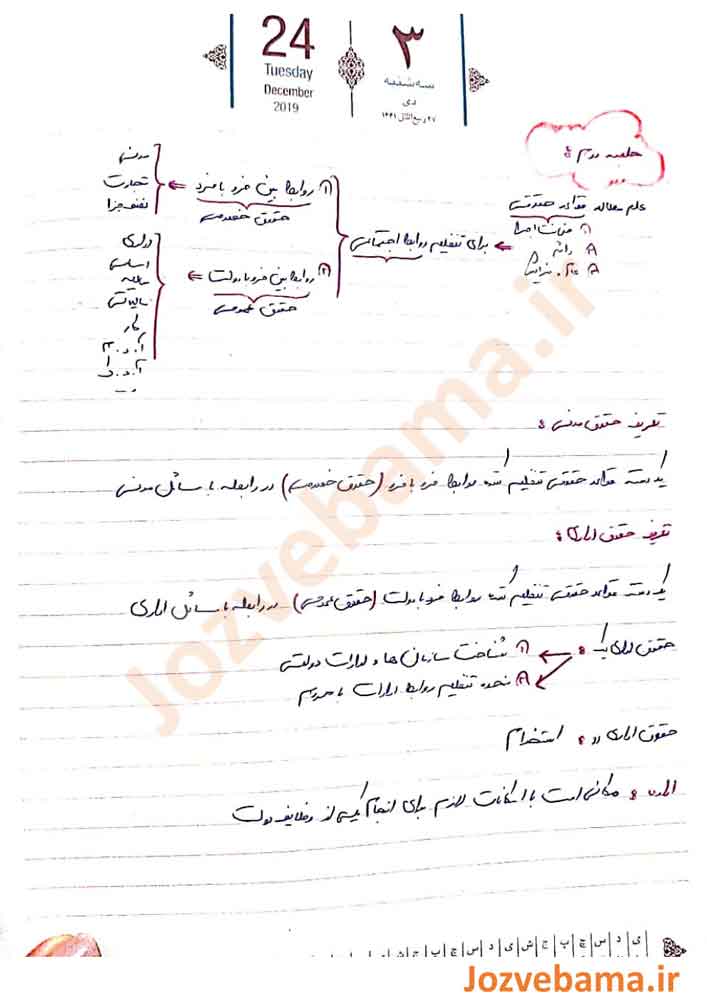 24
Tuesday
December
2019
۳
سه شنبه
دی
۲۷ ربیع الثانی ۱۴۴۱
جلسه دوم :
علم مطالعه قواعد حقوقی
① ضمانت اجرا
② دائم
برای تنظیم روابط اجتماعی
① روابط بین فرد با فرد
حقوق خصوصی
مدنی
تجارت
② روابط بین فرد با دولت
حقوق عمومی
اداری
اساسی
مالیاتی
کار
آ.د.م
آ.د.ک
تعریف حقوق مدنی :
یک دسته قواعد حقوقی تنظیم کننده روابط فرد با فرد (حقوق خصوصی) در رابطه با مسائل مدنی
تعریف حقوق اداری :
یک دسته قواعد حقوقی تنظیم کننده روابط فرد با دولت (حقوق عمومی) در رابطه با مسائل اداری
حقوق اداری یک :
① شناخت سازمان ها و ادارات دولتی
② نحوه تنظیم روابط ادارات با مردم
حقوق اداری دو : استخدام
اداره : مکانی است با امکانات لازم برای انجام یکی از وظایف دولت
Jozvebama.ir
Jozvebama.ir